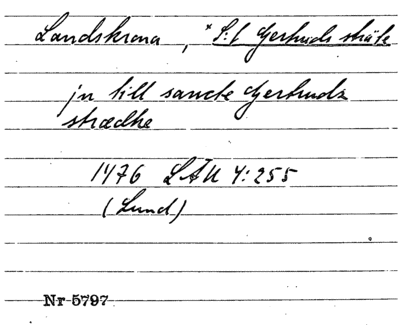 Landskrona, *S:t Gertruds stræte
jn till sancte Gertrudz
strædhe
1476 LÄU 4:255
(Lund)
Nr 5797